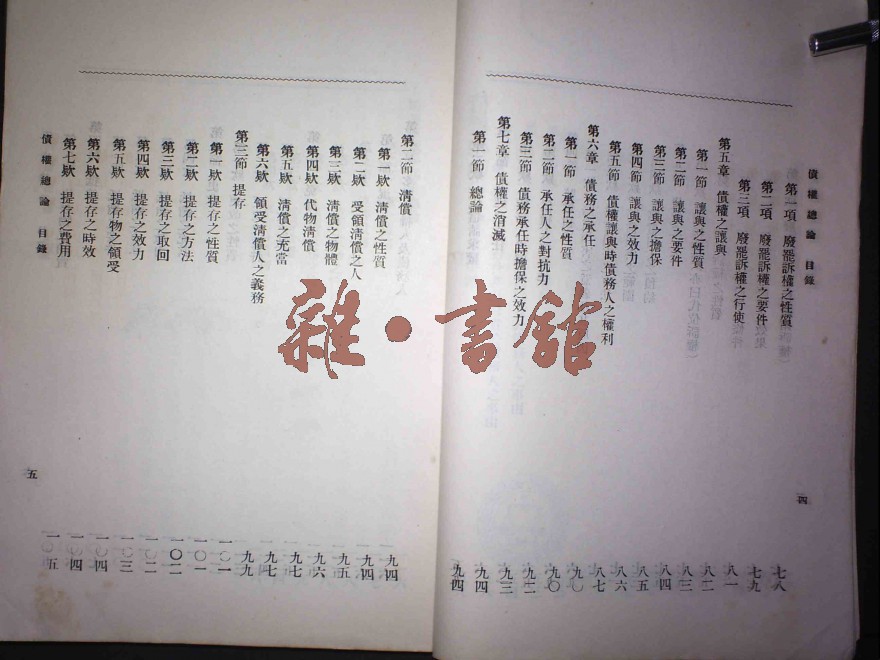 債權總論 目錄
第一項 廢罷訴權之性質 七八
第二項 廢罷訴權之要件 七九
第三項 廢罷訴權之行使 八一
第五章 債權之讓與 八二
第一節 讓與之性質 八三
第二節 讓與之要件 八四
第三節 讓與之擔保 八五
第四節 讓與之效力 八六
第五節 債權讓與時債務人之權利 八七
第六章 債務之承任 九〇
第一節 承任之性質 九〇
第二節 承任人之對抗力 九二
第三節 債務承任時擔保之效力 九三
第七章 債權之消滅 九四
第一節 總論 九四
四
第二節 清償 九四
第一欵 清償之性質 九四
第二欵 受領清償之人 九五
第三欵 清償之物體 九六
第四欵 代物清償 九七
第五欵 清償之充當 九七
第六欵 領受清償人之義務 九九
第三節 提存 一〇一
第一欵 提存之性質 一〇一
第二欵 提存之方法 一〇二
第三欵 提存之取回 一〇二
第四欵 提存之效力 一〇三
第五欵 提存物之領受 一〇四
第六欵 提存之時效 一〇四
第七欵 提存之費用 一〇五
債權總論 目錄
五
雜·書館